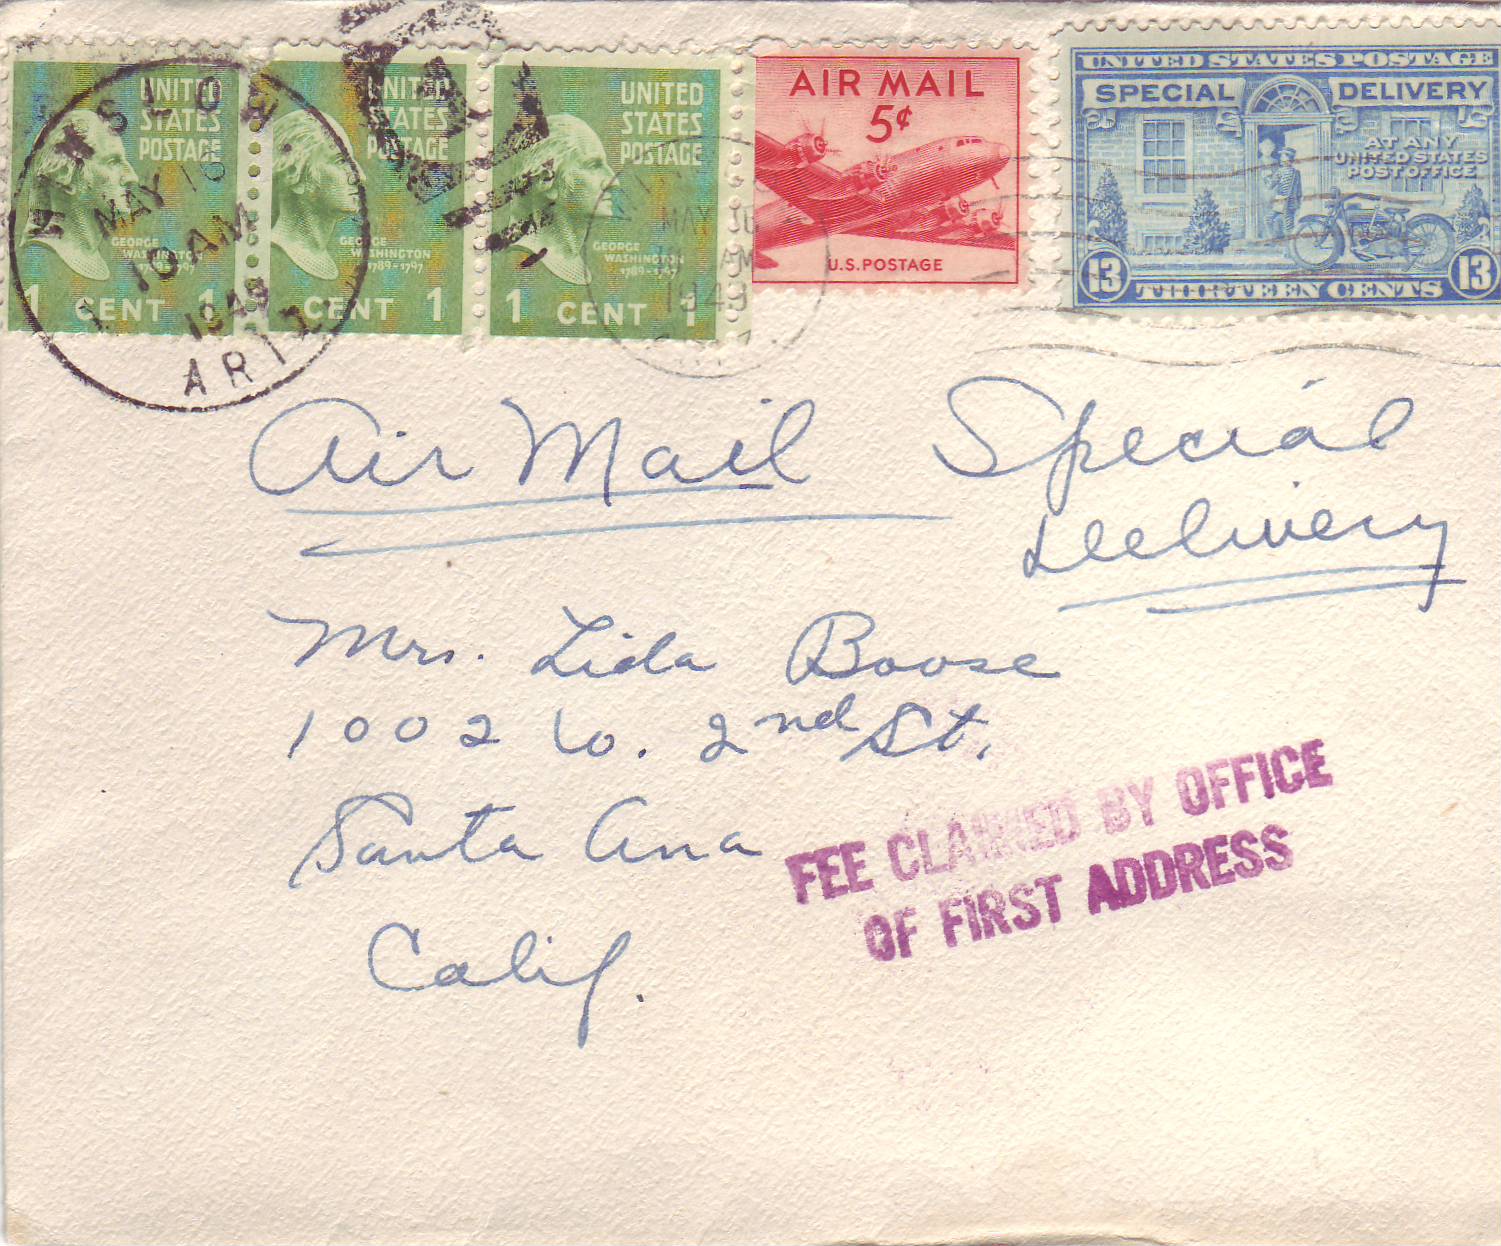 UNITED
STATES
POSTAGE
GEORGE
WASHINGTON
1789-1797
1 CENT 1
UNITED
STATES
POSTAGE
GEORGE
WASHINGTON
1789-1797
CENT 1
UNITED
STATES
POSTAGE
GEORGE
WASHINGTON
1789-1797
1 CENT 1
WINSLOW
MAY 16
10 AM
1949
ARIZ.
AIR MAIL
5¢
U.S. POSTAGE
MAY
AM
1949
UNITED STATES POSTAGE
SPECIAL DELIVERY
AT ANY
UNITED STATES
POST OFFICE
13 THIRTEEN CENTS 13
Air Mail Special
Delivery
Mrs. Lida Boose
1002 W. 2nd St.
Santa Ana
Calif.
FEE CLAIMED BY OFFICE
OF FIRST ADDRESS